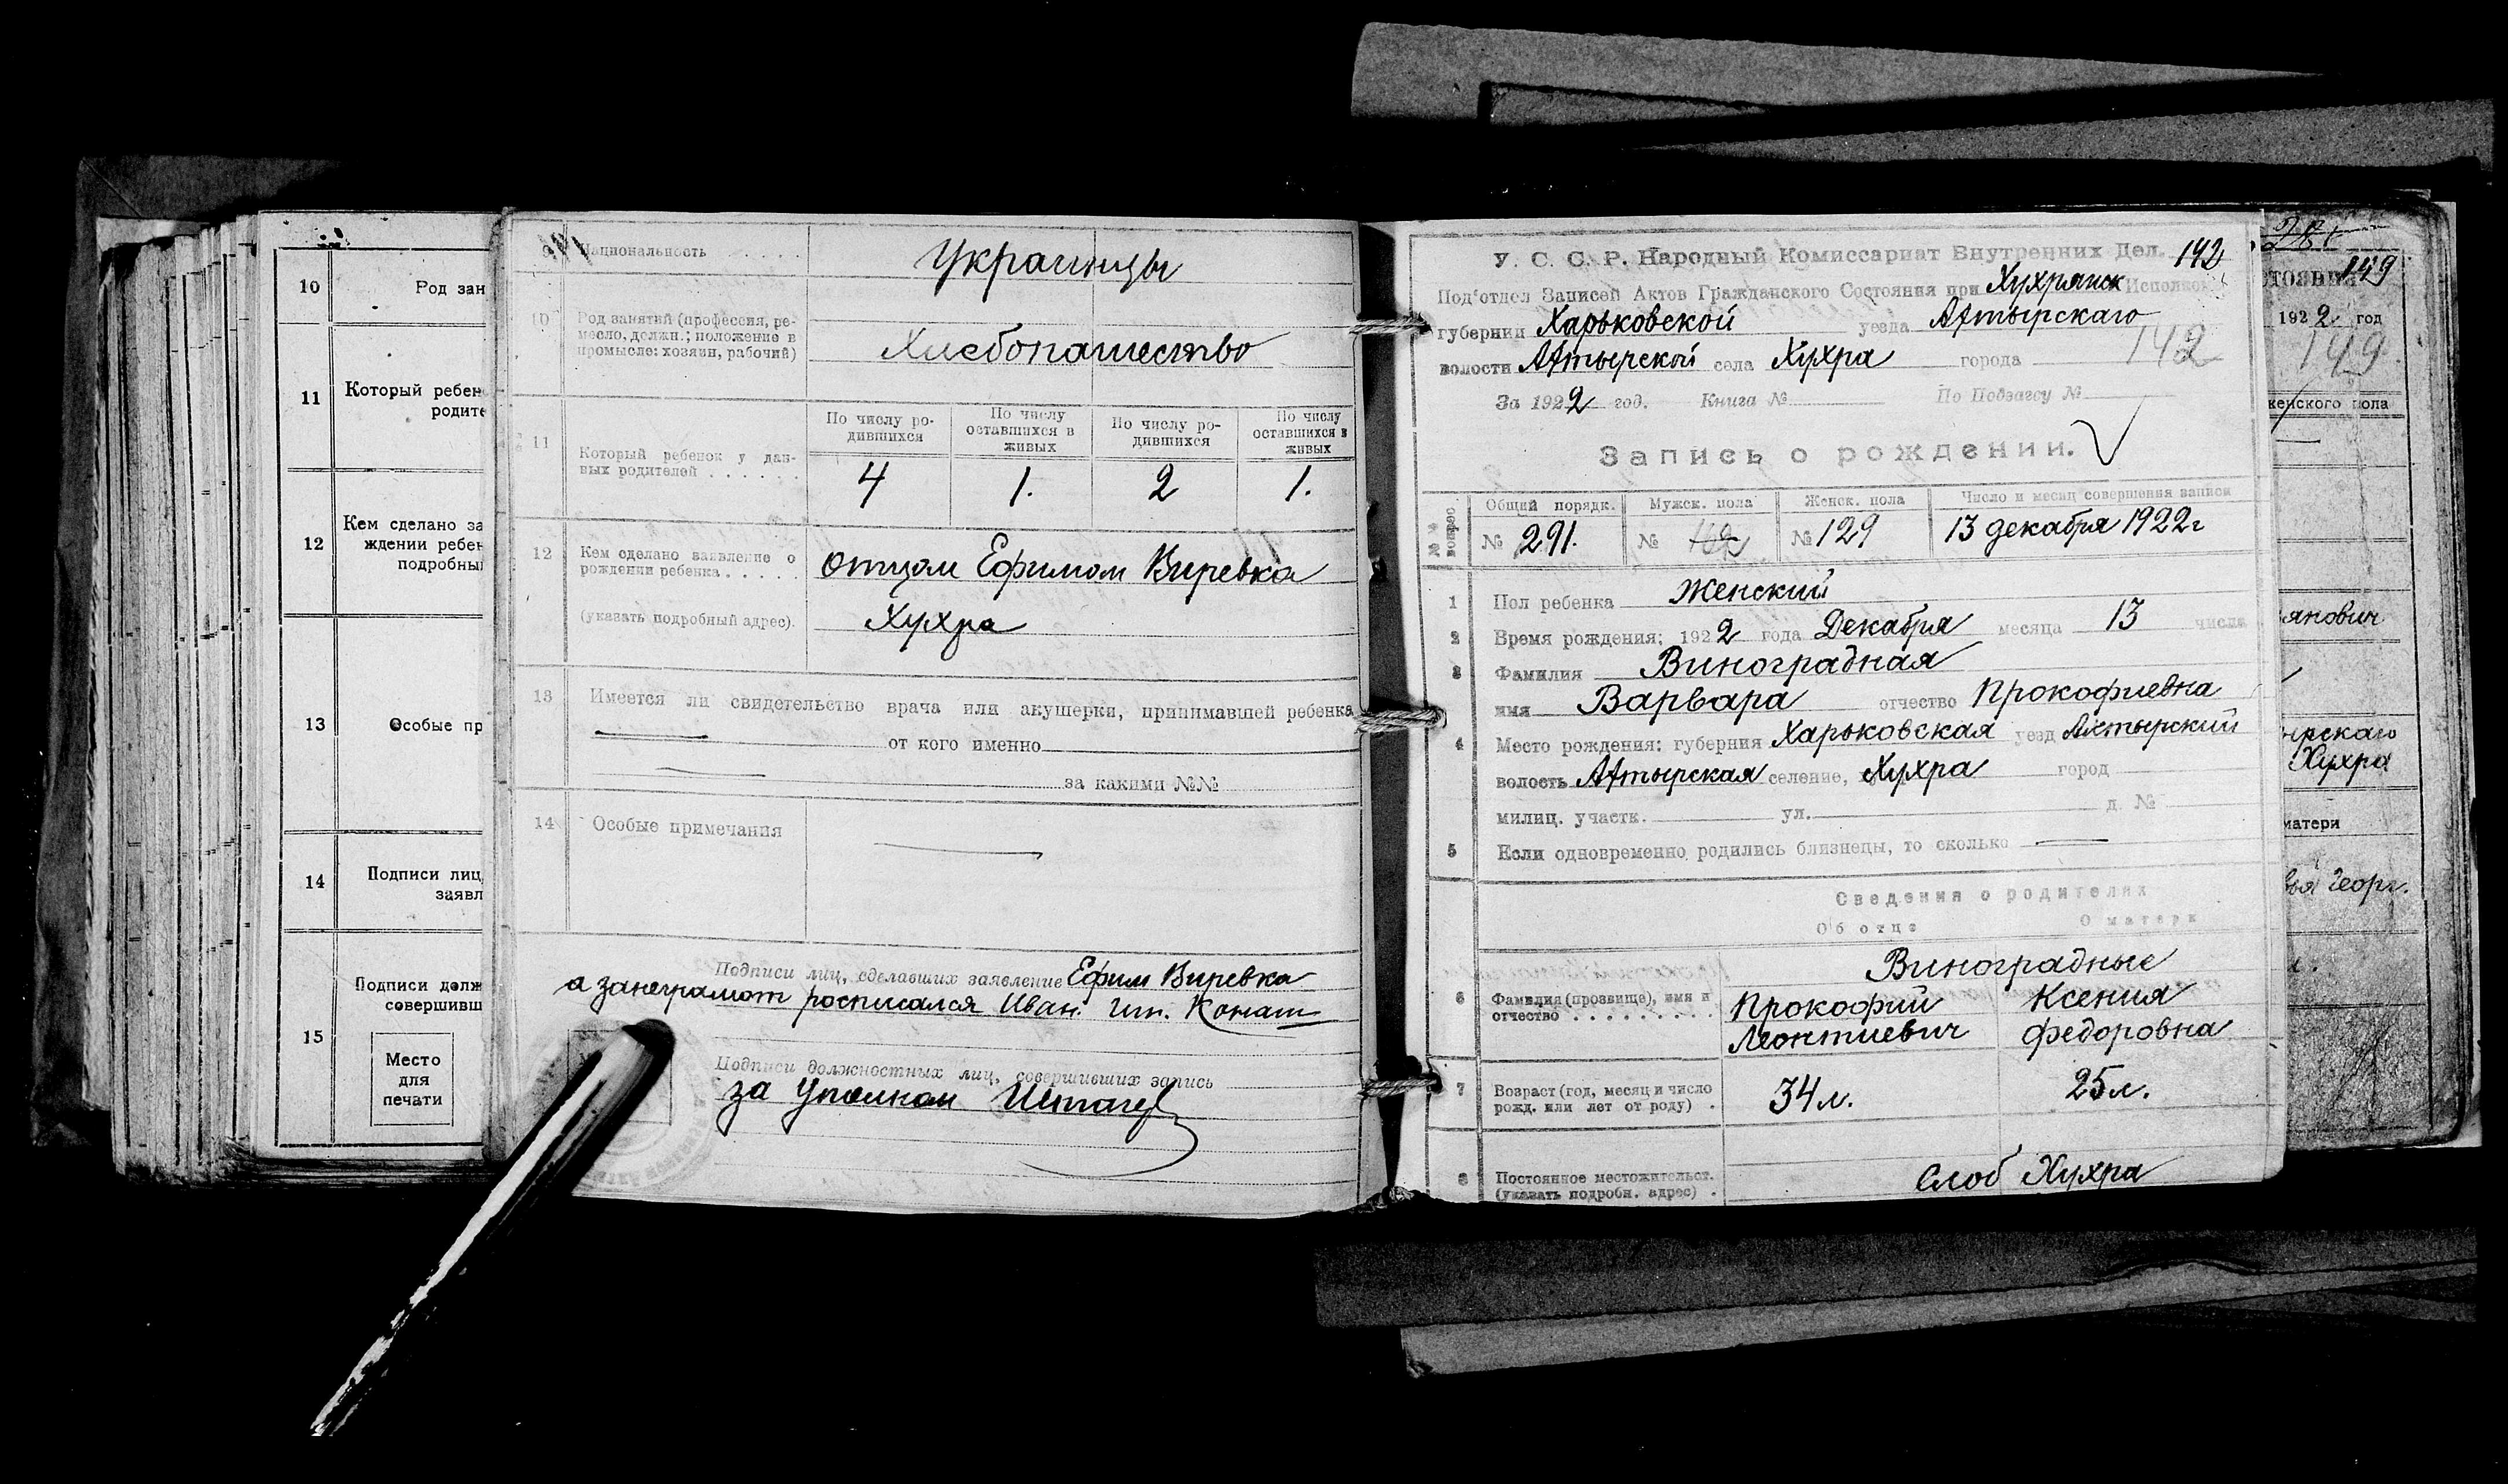 10
Род зан
11
Который ребен
родите
12
Кем сделано за
ждении ребен
подробны
13
Особые пр
14
Подписи лиц,
заявл
15
Подписи долж
совершивш
Место
для
печати
9 Национальность . . . . . Украинцы
10 Род занятий (профессия, ре-
месло, должн.; положение в
промысле: хозяин, рабочий) Хлебопашество
11 Который ребенок у дан-
ных родителей . . . . . .
По числу ро-
дившихся
По числу
оставшихся в
живых
По числу ро-
дившихся
По числу
оставшихся в
живых
4 1. 2 1.
12 Кем сделано заявление о
рождении ребенка . . . . . отцом Ефимом Виревка
(указать подробный адрес). Хухра
13 Имеется ли свидетельство врача или акушерки, принимавшей ребенка
от кого именно
за какими №№
14 Особые примечания
Подписи лиц, сделавших заявление Ефим Виревка
а занеграмот росписался Иван
Подписи должностных лиц, совершивших запись
за
У. С. С. Р. Народный Комиссариат Внутренних Дел. 142
Под'отдел Записей Актов Гражданского Состояния при Хухрянск Исполком
губернии Харьковской уезда Ахтырскаго
волости Ахтырской села Хухра города 142
За 1922 год. Книга № По Подзагсу №
Запись о рождении.
№№ вопрос
Общий порядк. Мужск. пола Женск. пола Число и месяц совершения записи
№ 291. № № 129 13 декабря 1922 г
1 Пол ребенка Женский
2 Время рождения: 1922 года Декабря месяца 13 числа
3 Фамилия Виноградная
имя Варвара отчество Прокофиевна
4 Место рождения: губерния Харьковская уезд Ахтырский
волость Ахтырская селение, Хухра город
милиц. участк. ул. д. №
5 Если одновременно родились близнецы, то сколько
Сведения о родителях
Об отце О матери
Виноградные
6 Фамилия (прозвище), имя и
отчество . . . . . . . . .
Прокофий Ксения
Леонтиевич Федоровна
7 Возраст (год, месяц и число
рожд. или лет от роду) . 34 л. 25 л.
8 Постоянное местожительст.
(указать подробн. адрес) . Слоб Хухра
149
тояния
1922 год
149
женского пола
янович
ырскаго
Хухра
матери
Георг.